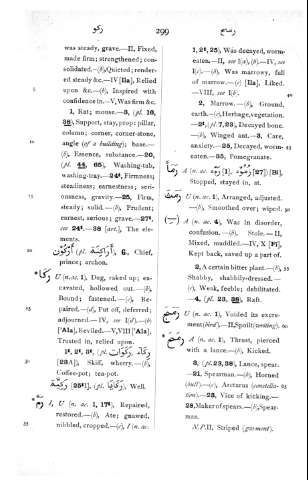 ركو
299
رسـح
was steady, grave.—II, Fixed,
made firm; strengthened; con-
solidated.—(b), Quieted; render-
ed steady &c.—IV [IIa], Relied
upon &c.—(b), Inspired with
confidence in.—V, Was firm &c.
1, Rat; mouse.—3, (pl. 16,
38), Support, stay, prop; pillar,
column; corner, corner-stone,
angle (of a building); base.—
(b), Essence, substance.—20,
(pl. 44, 65), Washing-tub,
washing-tray.—24¹, Firmness;
steadiness; earnestness; seri-
ousness, gravity.—25, Firm,
steady; solid.—(b), Prudent;
earnest, serious; grave.—27¹,
see 24¹.—38 [art.], The ele-
ments.
6, Chief,
prince; archon.
U (n. ac. 1), Dug, raked up; ex-
cavated, hollowed out.—(b),
Bound; fastened.—(c), Re-
paired.—(d), Put off, deferred;
adjourned.—IV, see I(d).—(b)
['Ala], Reviled.—V, VIII ['Ala],
Trusted in, relied upon.
[23A]), Skiff, wherry.—(b),
Coffee-pot; tea-pot.
ركيّة [25¹], (pl. ركايا), Well.
رمّ I, U (n. ac. 1, 17¹), Repaired,
restored.—(b), Ate; gnawed,
nibbled, cropped.—(c), I (n. ac.
1, 2¹, 25), Was decayed, worm-
eaten.—II, see I(a), (b).—IV, see
I(c).—(b), Was marrowy, full
of marrow.—(c) [Ila], Liked.
—VIII, see I(b).
2, Marrow.—(b), Ground,
earth.—(c), Herbage, vegetation.
—2¹, (pl. 7, 23), Decayed bone.
—(b), Winged ant.—3, Care,
anxiety.—25, Decayed, worm-
eaten.—35, Pomegranate.
Stopped, stayed in, at.
U (n. ac. 1), Arranged, adjusted.
—(b), Smoothed over; wiped.
A (n. ac. 4), Was in disorder,
confusion.—(b), Stole.—II,
Mixed, muddled.—IV, X [Fi],
Kept back, saved up a part of.
2, A certain bitter plant.—(b),
Shabby, shabbily-dressed.—
(c), Weak, feeble; debilitated.
—4, (pl. 23, 38), Raft.
U (n. ac. 1), Voided its excre-
ment (bird).—II, Spoilt (writing).
A (n. ac. 1), Thrust, pierced
with a lance.—(b), Kicked.
3, (pl. 23, 38), Lance, spear.
—21, Spearman.—(b), Horned
(bull).—(c), Arcturus (constella-
tion).—23, Vice of kicking.—
28, Maker of spears.—(b), Spear-
man.
N. P. II, Striped (garment).